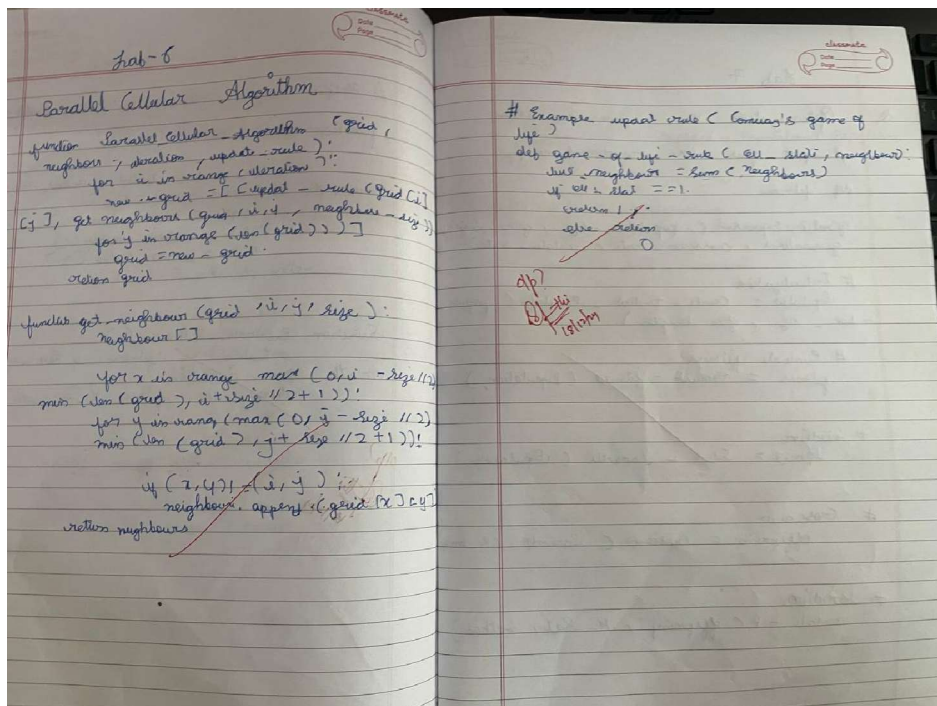 classmate
Date
Page
Lab-6
Parallel Cellular Algorithm
function Parallel_Cellular_Algorithm (grid,
neighbour, iteration, update_rule):
for i in range (iteration):
new_grid = [ (updat_rule (grid[i]
[j], get neighbours (grid, i, j, neighbore-size))
for j in range (len(grid)))]
grid = new_grid
return grid
function get_neighbours (grid, i, j, size):
neighbour []
for x in range max (0, i - size//2,
min (len (grid), i + size // 2 + 1)):
for y in rang (max (0, j - size //2)
min (len (grid), j + size // 2 + 1)):
if (x, y) != (i, j):
neighbour. append (grid [x][y]
return neighbours
classmate
Date
Page
# Example updat rule (Conway's game of
life)
def game-of-life-rule (cell_state, neighbour):
neighbours = sum (neighbours)
if cell stat == 1.
return 1
else return
0
o/p?
18/12/24